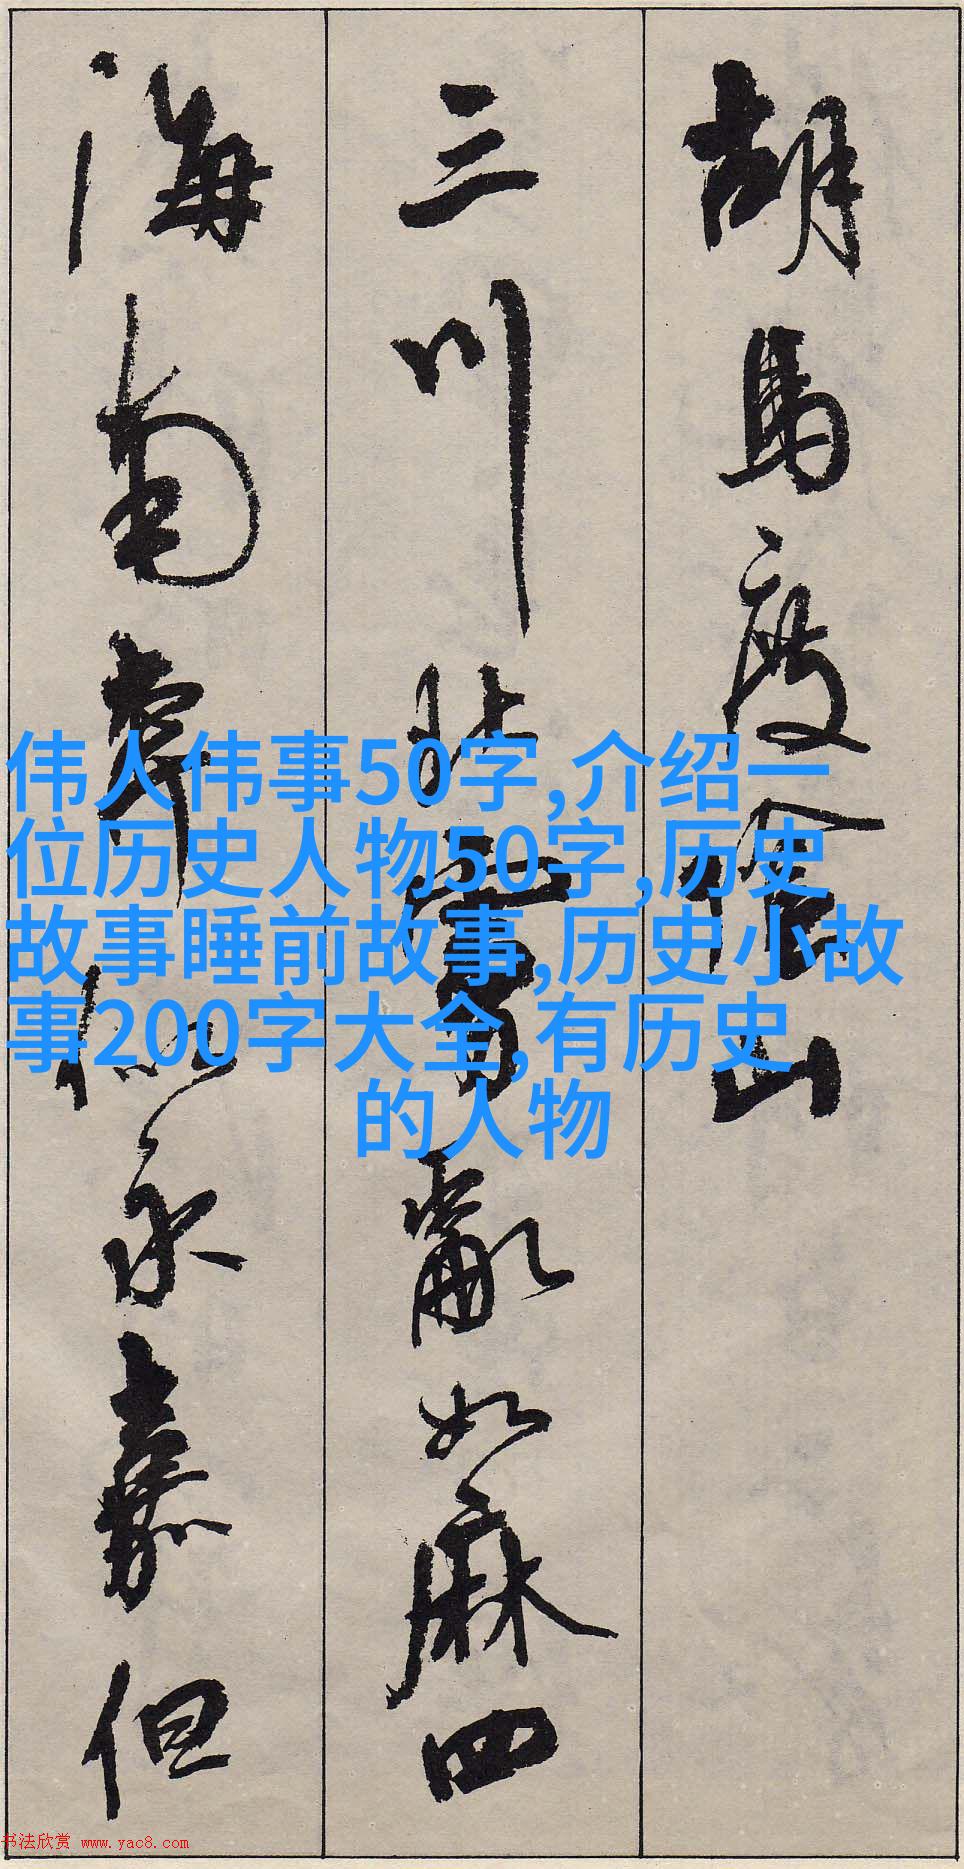 胡馬度陰山
三川北虜亂如麻四
海南奔似永嘉但
伟人伟事50字,介绍一
位历史人物50字,历史
故事睡前故事,历史小故
事200字大全,有历史
的人物
书法欣赏 www.yac8.com